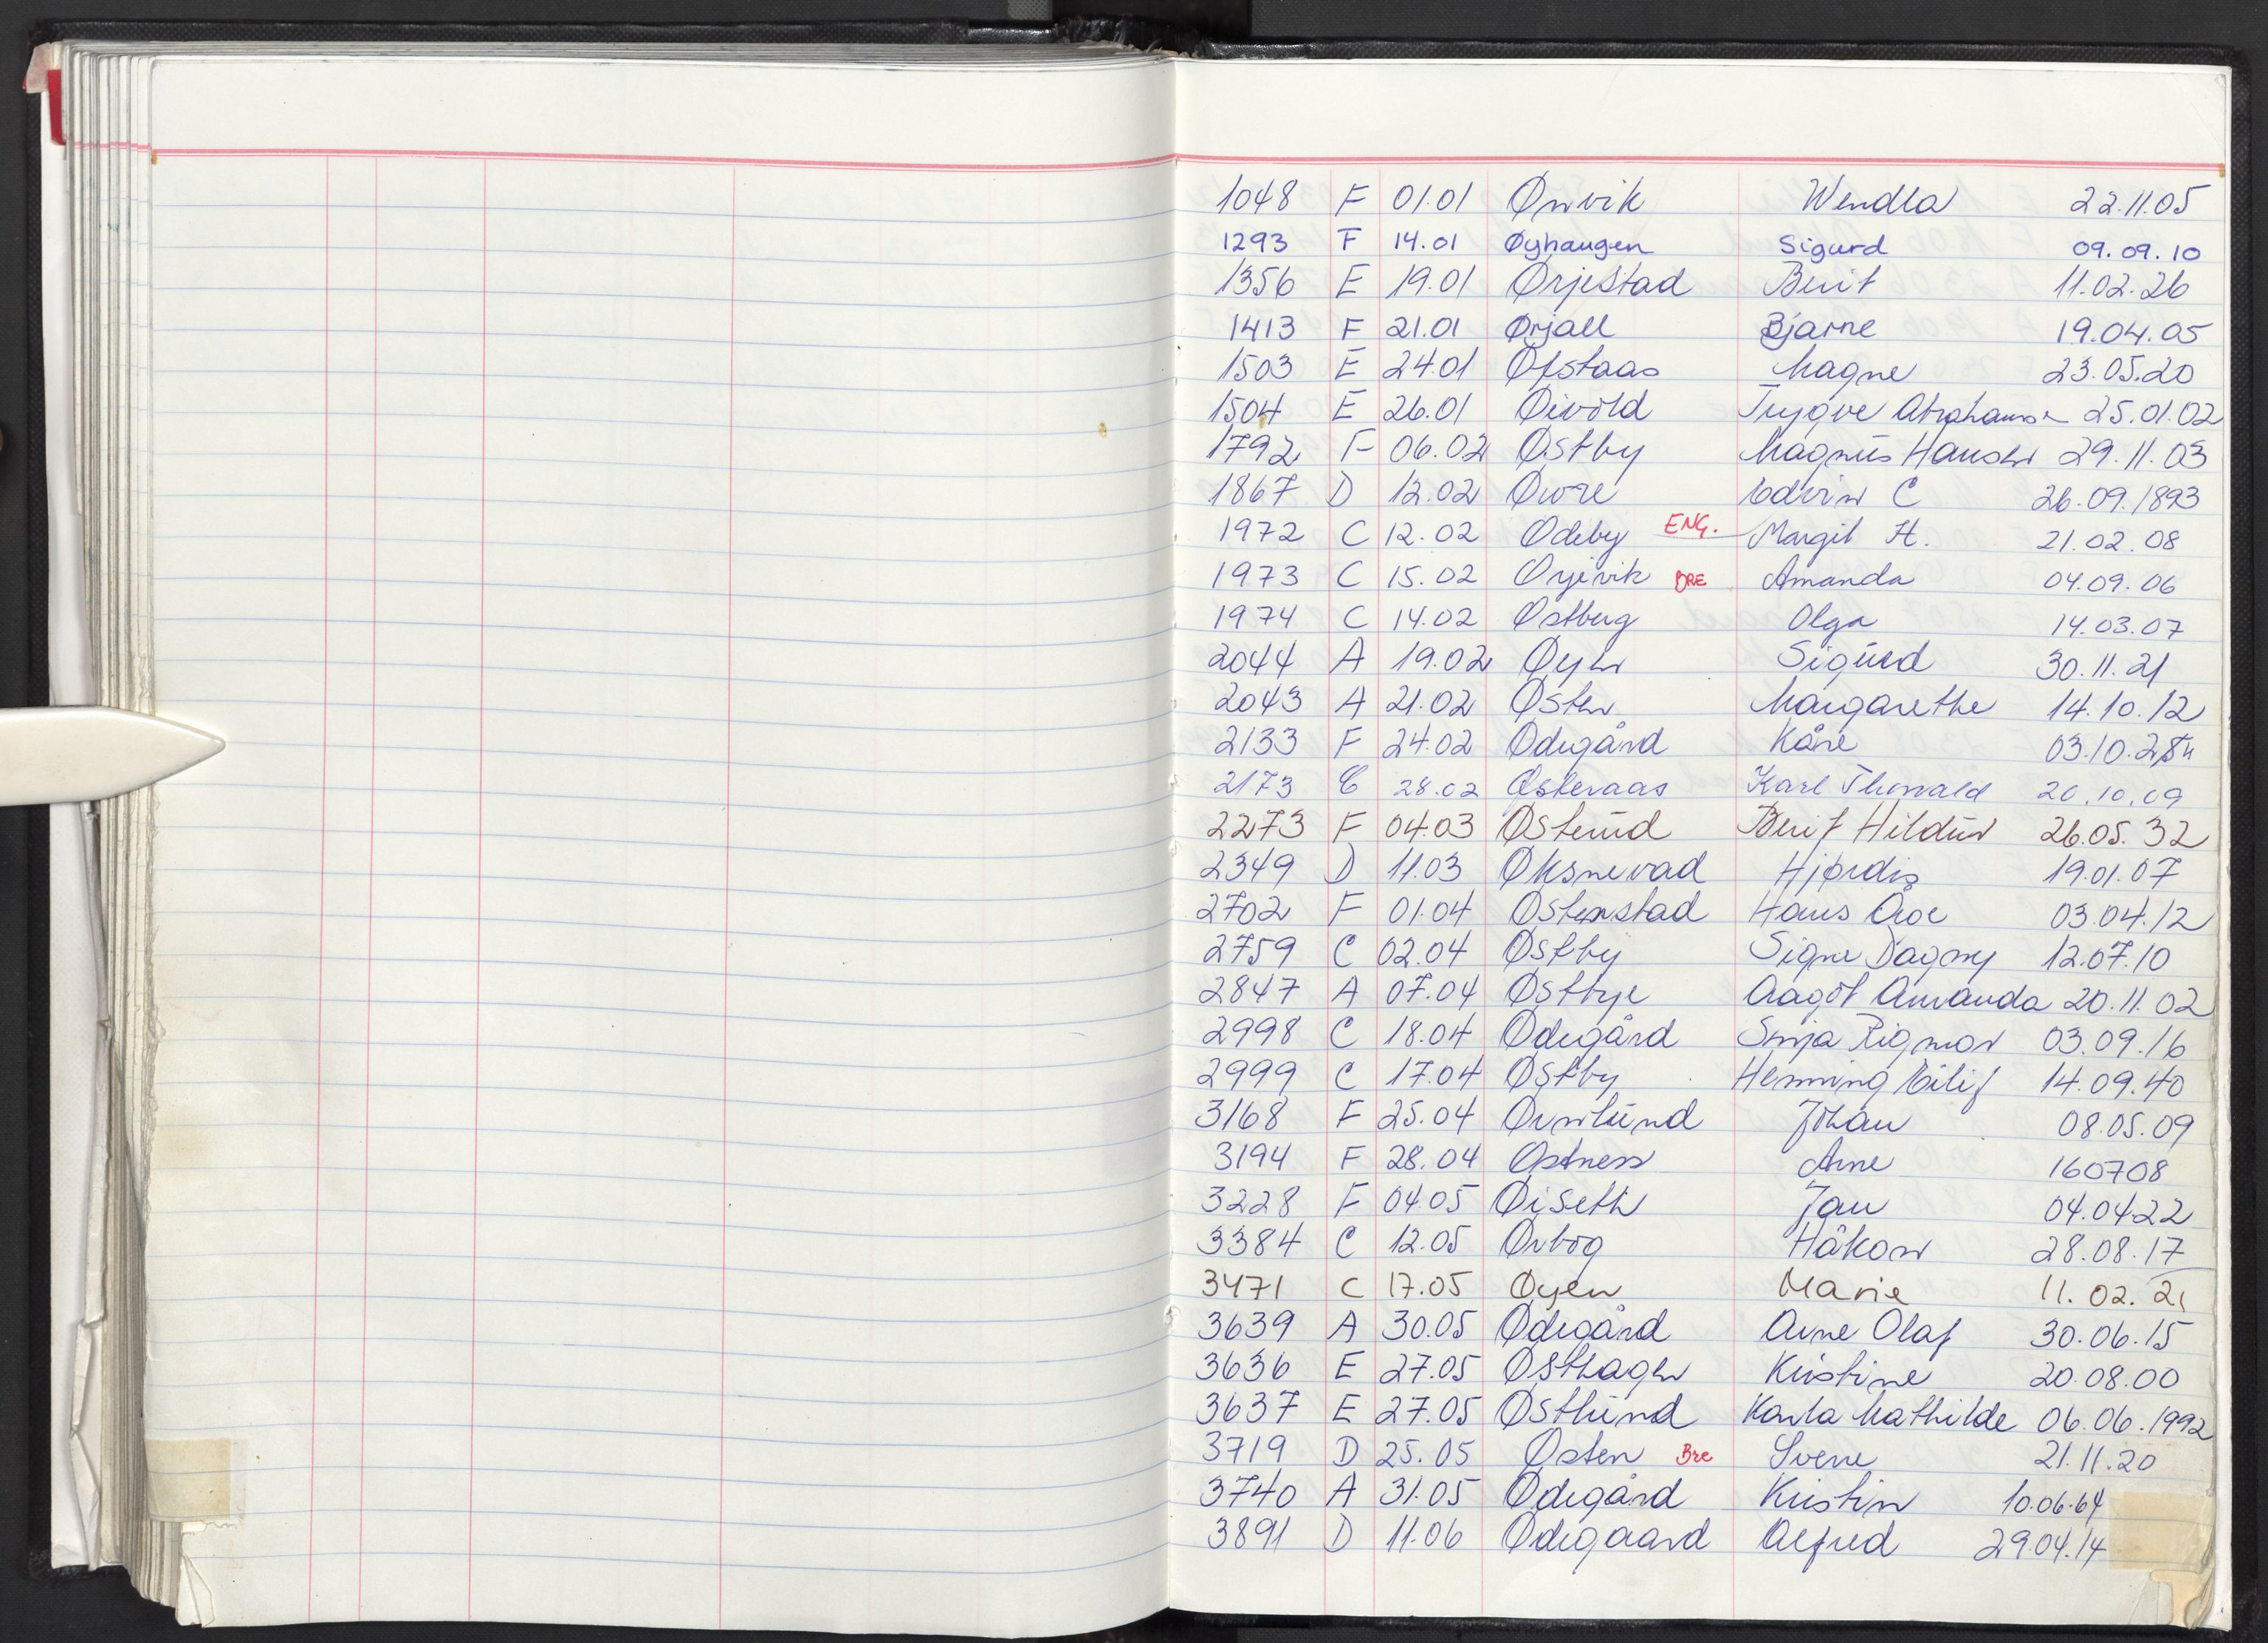 1048 F 01.01 Ørvik Wendla 22.11.05
1293 F 14.01 Øyhaugen Sigurd 09.09.10
1356 E 19.01 Ørjestad Berit 11.02.26
1413 F 21.01 Ørjall Bjarne 19.04.05
1503 E 24.01 Øfstaas Magne 23.05.20
1504 E 26.01 Øivold Trygve 25.01.02
1792 F 06.02 Østby Magnus Hansen 29.11.03
1867 D 12.02 Øvre Edvin C 26.09.1893
1972 C 12.02 Ødeby ENG. Margit H. 21.02.08
1973 C 15.02 BRE Amanda 04.09.06
1974 C 14.02 Østberg Olga 14.03.07
2044 A 19.02 Øyen Sigurd 30.11.21
2043 A 21.02 Østen Margarethe 14.10.12
2133 F 24.02 Ødegård Kåre 03.10
2173 C 28.02 Østeraas Karl Thorvald 20.10.09
2273 F 04.03 Østerud Berit Hildur 26.05.32
2349 D 11.03 Øksnevad Hjørdis 19.01.07
2702 F 01.04 Østenstad Hans 03.04.12
2759 C 02.04 Østby Signe Dagny 12.07.10
2847 A 07.04 Østbye Aagot Amanda 20.11.02
2998 C 18.04 Ødegård Rigmor 03.09.16
2999 C 17.04 Østby Henning Eilif 14.09.40
3168 F 25.04 Johan 08.05.09
3194 F 28.04 Østness Arne 160708
3228 F 04.05 Øiseth Jan 04.04.22
3384 C 12.05 Ørbog Håkon 28.08.17
3471 C 17.05 Øyen Marie 11.02.21
3639 A 30.05 Ødegård Arne Olaf 30.06.15
3636 E 27.05 Østhagen Kristine 20.08.00
3637 E 27.05 Østlund Karla Mathilde 06.06.1992
3719 D 25.05 Østen Bre Svene 21.11.20
3740 A 31.05 Ødegård Kristin 10.06.64
3891 D 11.06 Ødegaard Alfred 29.04.14